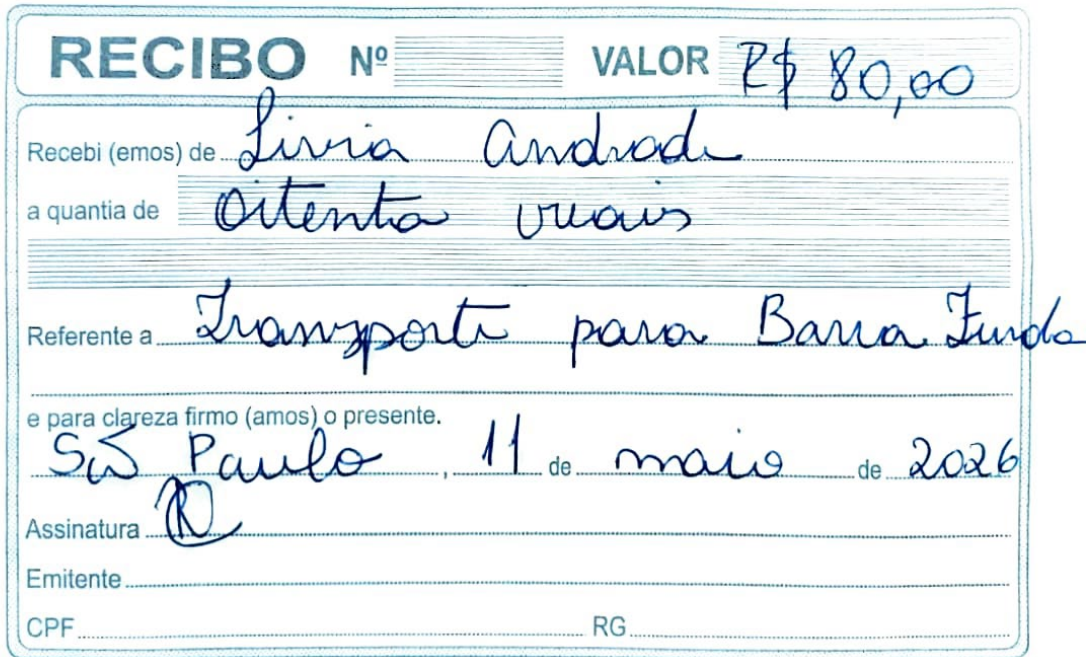 RECIBO Nº VALOR R$ 80,00
Recebi (emos) de Livia Andrade
a quantia de Oitenta reais
Referente a Transporte para Barra Funda
e para clareza firmo (amos) o presente.
São Paulo, 11 de maio de 2026
Assinatura
Emitente
CPF RG